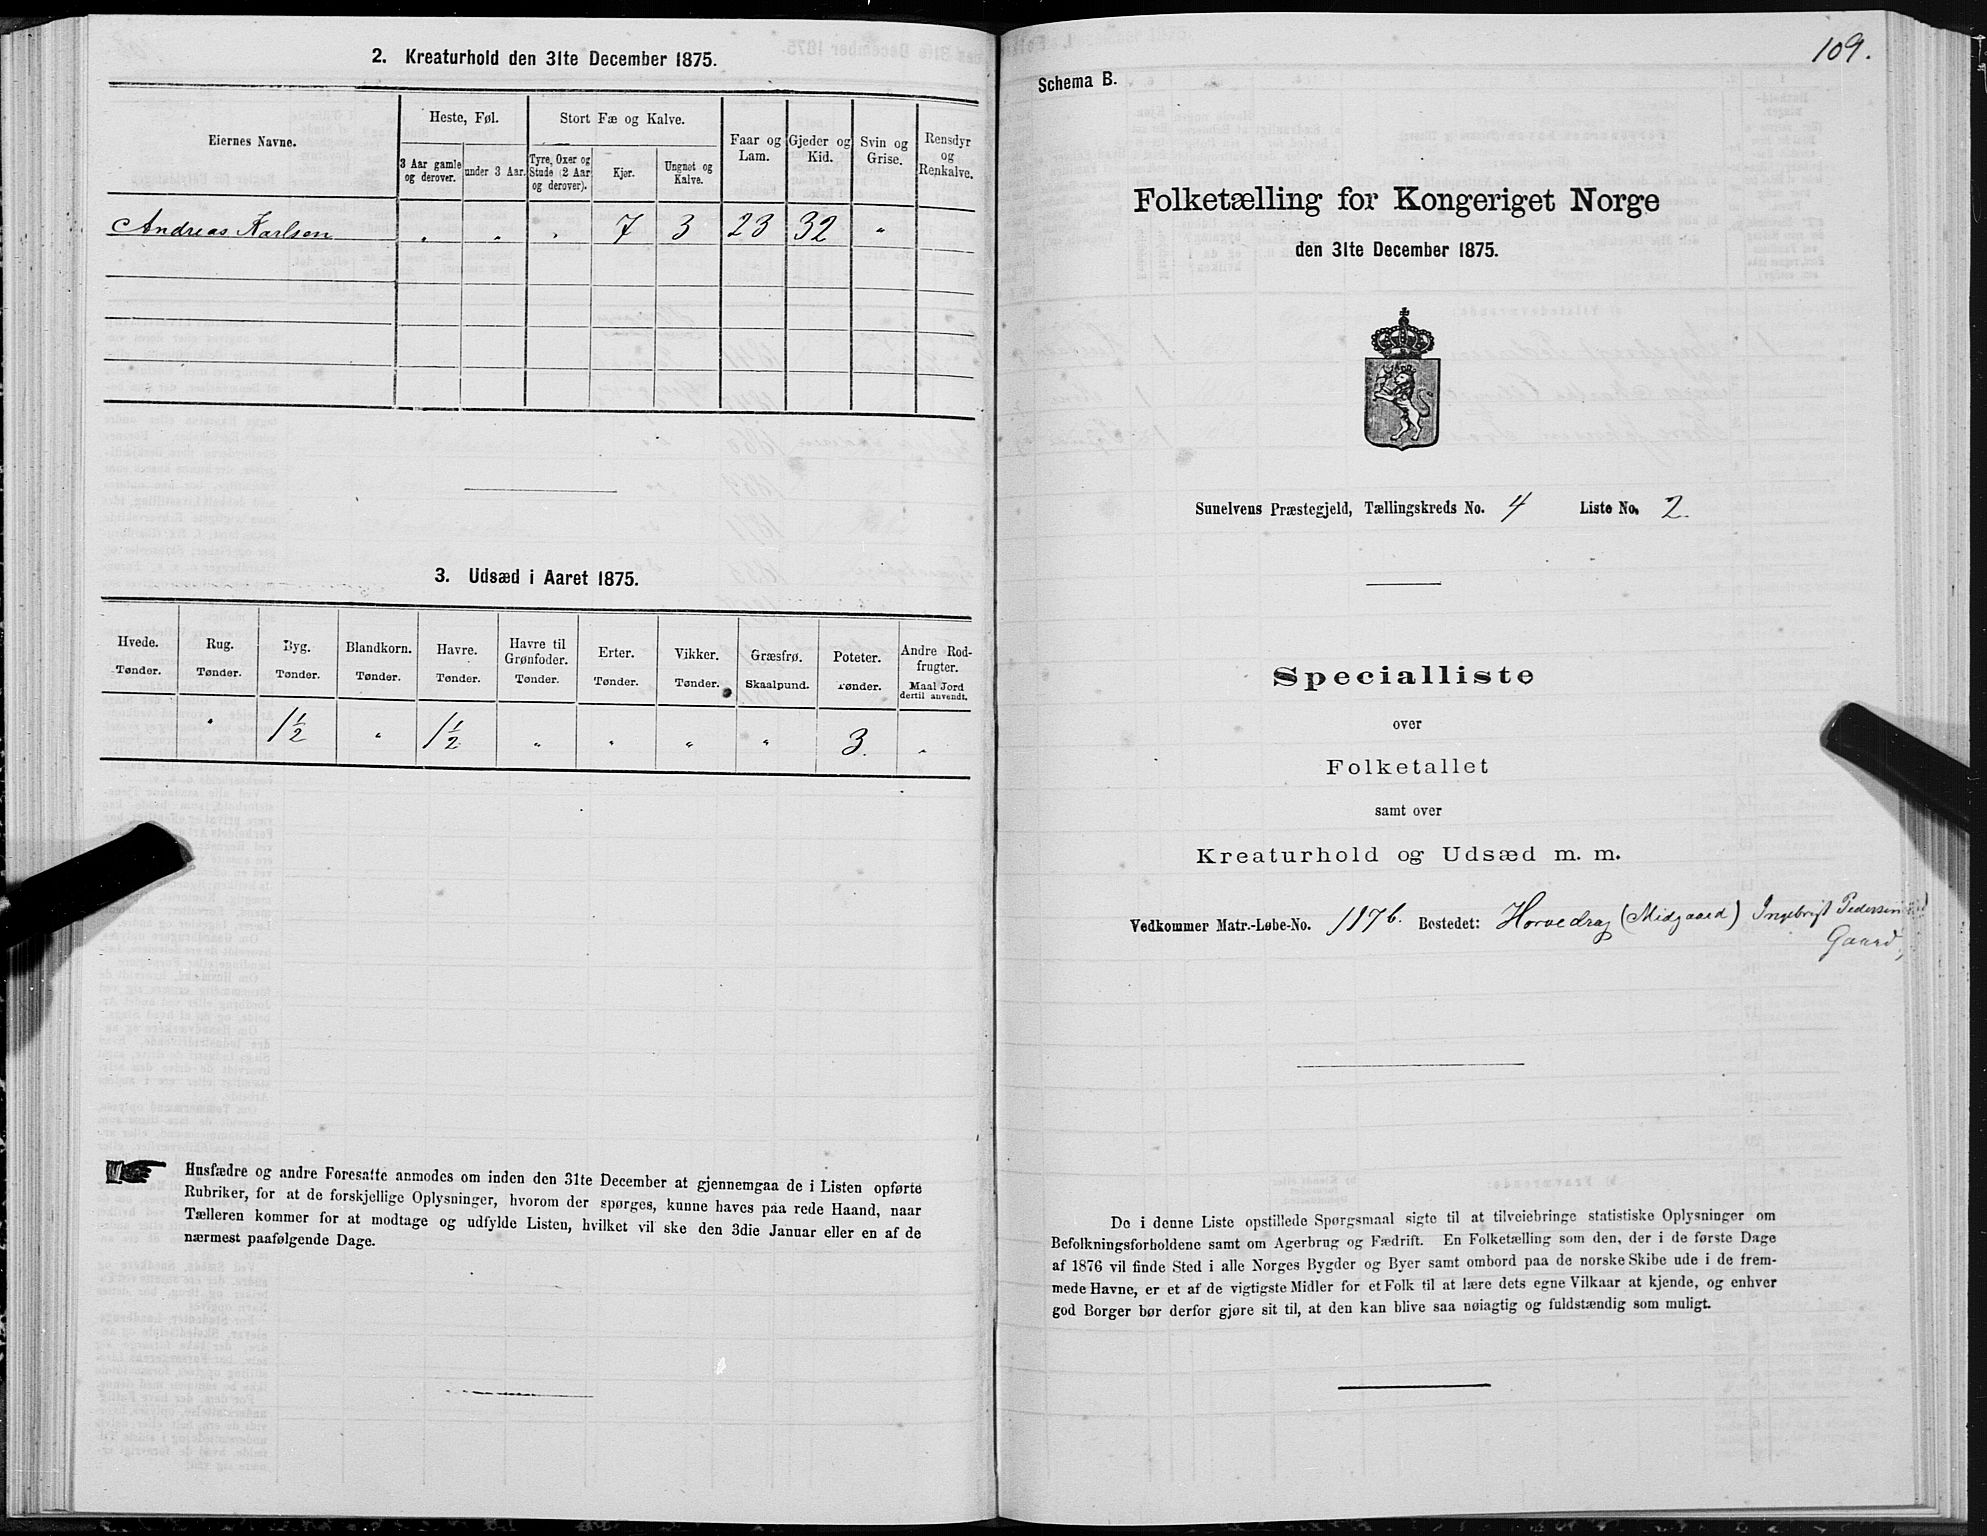 2. Kreaturhold den 31te December 1875.
Eiernes Navne.
Heste, Føl.
Stort Fæ og Kalve.
Faar og Lam.
Gjeder og Kid.
Svin og Grise.
Rensdyr og Renkalve.
3 Aar gamle og derover.
under 3 Aar.
Tyre, Oxer og Stude (2 Aar og derover).
Kjør.
Ungnøt og Kalve.
Andreas Karlsen " " " 7 3 23 32 "
3. Udsæd i Aaret 1875.
Hvede. Rug. Byg. Blandkorn. Havre. Havre til Grønfoder. Erter. Vikker. Græsfrø. Poteter. Andre Rodfrugter.
Tønder. Tønder. Tønder. Tønder. Tønder. Tønder. Tønder. Tønder. Skaalpund. Tønder. Maal Jord dertil anvendt.
" 1½ " 1½ " " " " 3. "
Husfædre og andre Foresatte anmodes om inden den 31te December at gjennemgaa de i Listen opførte
Rubriker, for at de forskjellige Oplysninger, hvorom der spørges, kunne haves paa rede Haand, naar
Tælleren kommer for at modtage og udfylde Listen, hvilket vil ske den 3die Januar eller en af de
nærmest paafølgende Dage.
109.
Schema B.
Folketælling for Kongeriget Norge
den 31te December 1875.
Sunelvens Præstegjeld, Tællingskreds No. 4 Liste No. 2.
Specialliste
over
Folketallet
samt over
Kreaturhold og Udsæd m. m.
Vedkommer Matr.-Løbe-No. 117b. Bostedet: Horvedrag (Midgaard) Ingebrigt Pedersen
Gaard,
De i denne Liste opstillede Spørgsmaal sigte til at tilveiebringe statistiske Oplysninger om
Befolkningsforholdene samt om Agerbrug og Fædrift. En Folketælling som den, der i de første Dage
af 1876 vil finde Sted i alle Norges Bygder og Byer samt ombord paa de norske Skibe ude i de frem-
mede Havne, er et af de vigtigste Midler for et Folk til at lære dets egne Vilkaar at kjende, og enhver
god Borger bør derfor gjøre sit til, at den kan blive saa nøiagtig og fuldstændig som muligt.